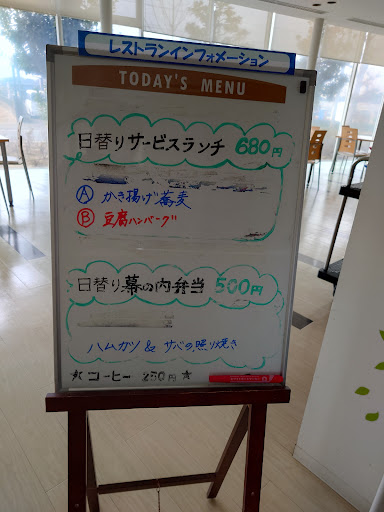 レストランインフォメーション
TODAY'S MENU
日替りサービスランチ 680円
Ⓐ かき揚げ蕎麦
Ⓑ 豆腐ハンバーグ
日替り幕の内弁当 500円
ハムカツ & サバの照り焼き
☆ コーヒー 250円 ☆